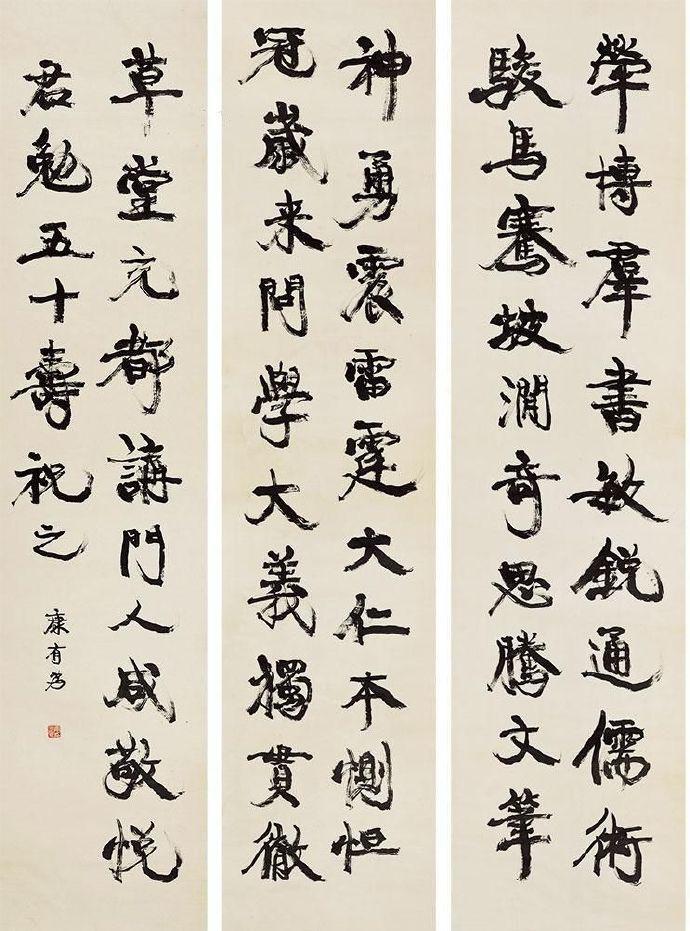 犖博羣書敏銳通儒術
駿馬騫坡澗奇思騰文筆
神勇震雷霆大仁本惻怛
冠歲来問學大義獨貫徹
草堂充都講門人咸敬悅
君勉五十壽祝之
康有為